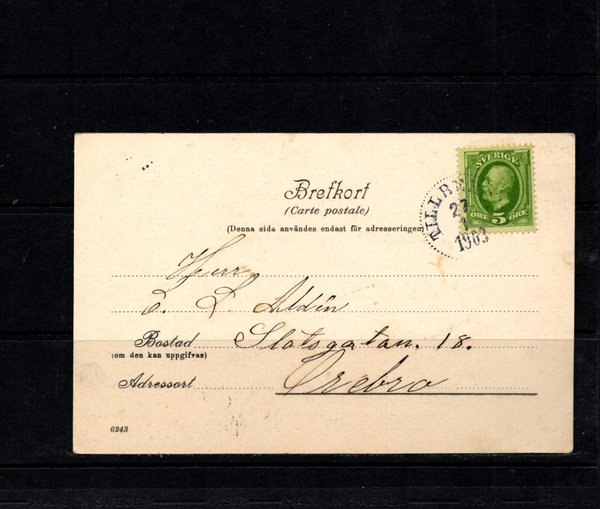 SVERIGE
ÖRE 5 ÖRE
27
1903
Brefkort
(Carte postale)
(Denna sida användes endast för adresseringen)
Herr
L. Aldén
Bostad Slotsgatan. 18.
(om den kan uppgifvas)
Adressort Örebro
6243